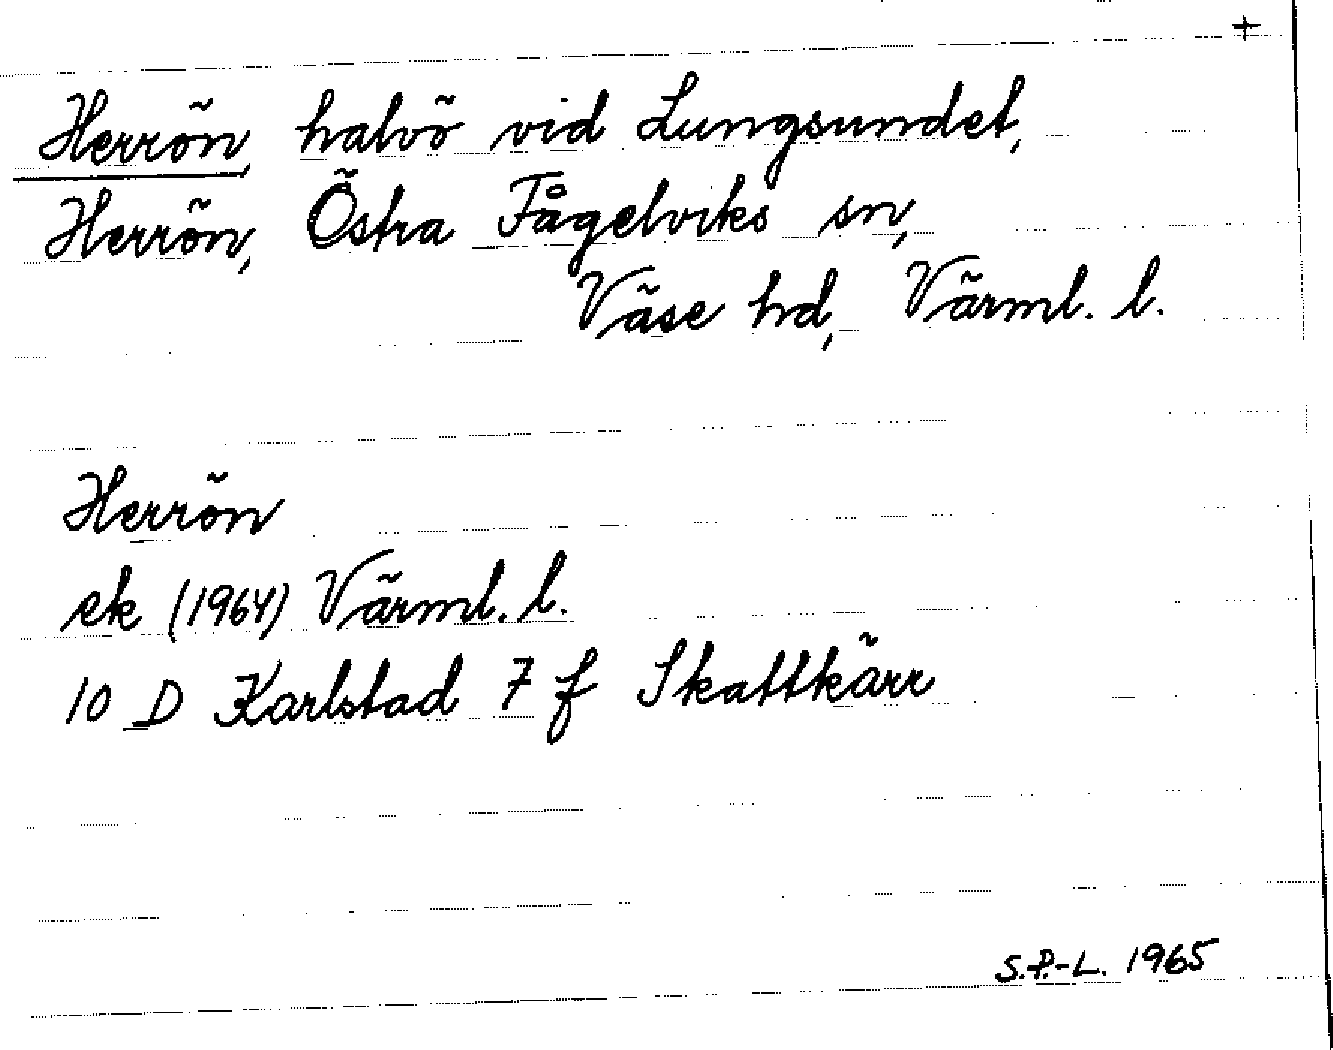 +
Herrön, halvö vid Lungsundet,
Herrön, Östra Fågelviks sn,
Väse hd, Värml. l.
Herrön
ek (1964) Värml. l.
10 D Karlstad 7 f Skattkärr
S.P.-L. 1965